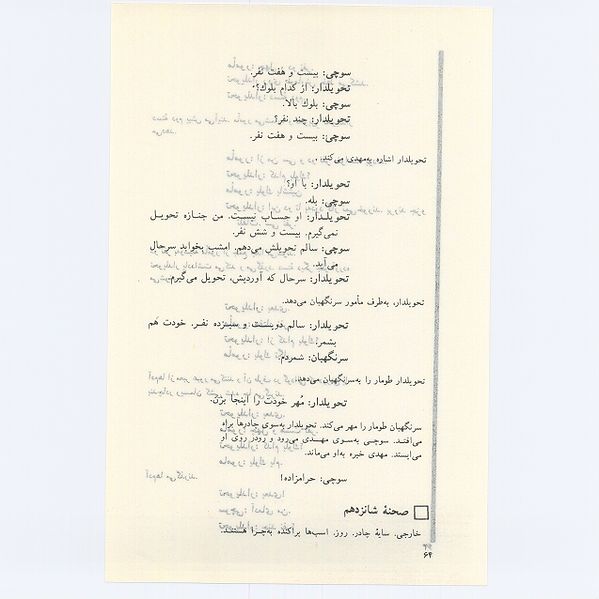 سوچی: بیست و هفت نفر.
تحویلدار: از کدام بلوك؟
سوچی: بلوك بالا.
تحویلدار: چند نفر؟
سوچی: بیست و هفت نفر.
تحویلدار اشاره به‌مهدی می‌کند.
تحویلدار: با او؟
سوچی: بله.
تحویلدار: او حساب نیست. من جنازه تحویل
نمی‌گیرم. بیست و شش نفر.
سوچی: سالم تحویلش می‌دهم. امشب بخوابد سرحال
می‌آید.
تحویلدار: سرحال که آوردیش، تحویل می‌گیرم.
تحویلدار، به‌طرف مأمور سرنگهبان می‌دهد.
تحویلدار: سالم دویست و سیزده نفر. خودت هم
بشمر.
سرنگهبان: شمردم.
تحویلدار طومار را به‌سرنگهبان می‌دهد.
تحویلدار: مُهر خودت را اینجا بزن.
سرنگهبان طومار را مهر می‌کند. تحویلدار به‌سوی چادرها براه
می‌افتد. سوچی به‌سوی مهدی می‌رود و رودر روی او
می‌ایستد. مهدی خیره به‌او می‌ماند.
سوچی: حرامزاده!
صحنۀ شانزدهم
خارجی. سایۀ چادر. روز. اسب‌ها پراکنده به‌چرا هستند.
۶۴